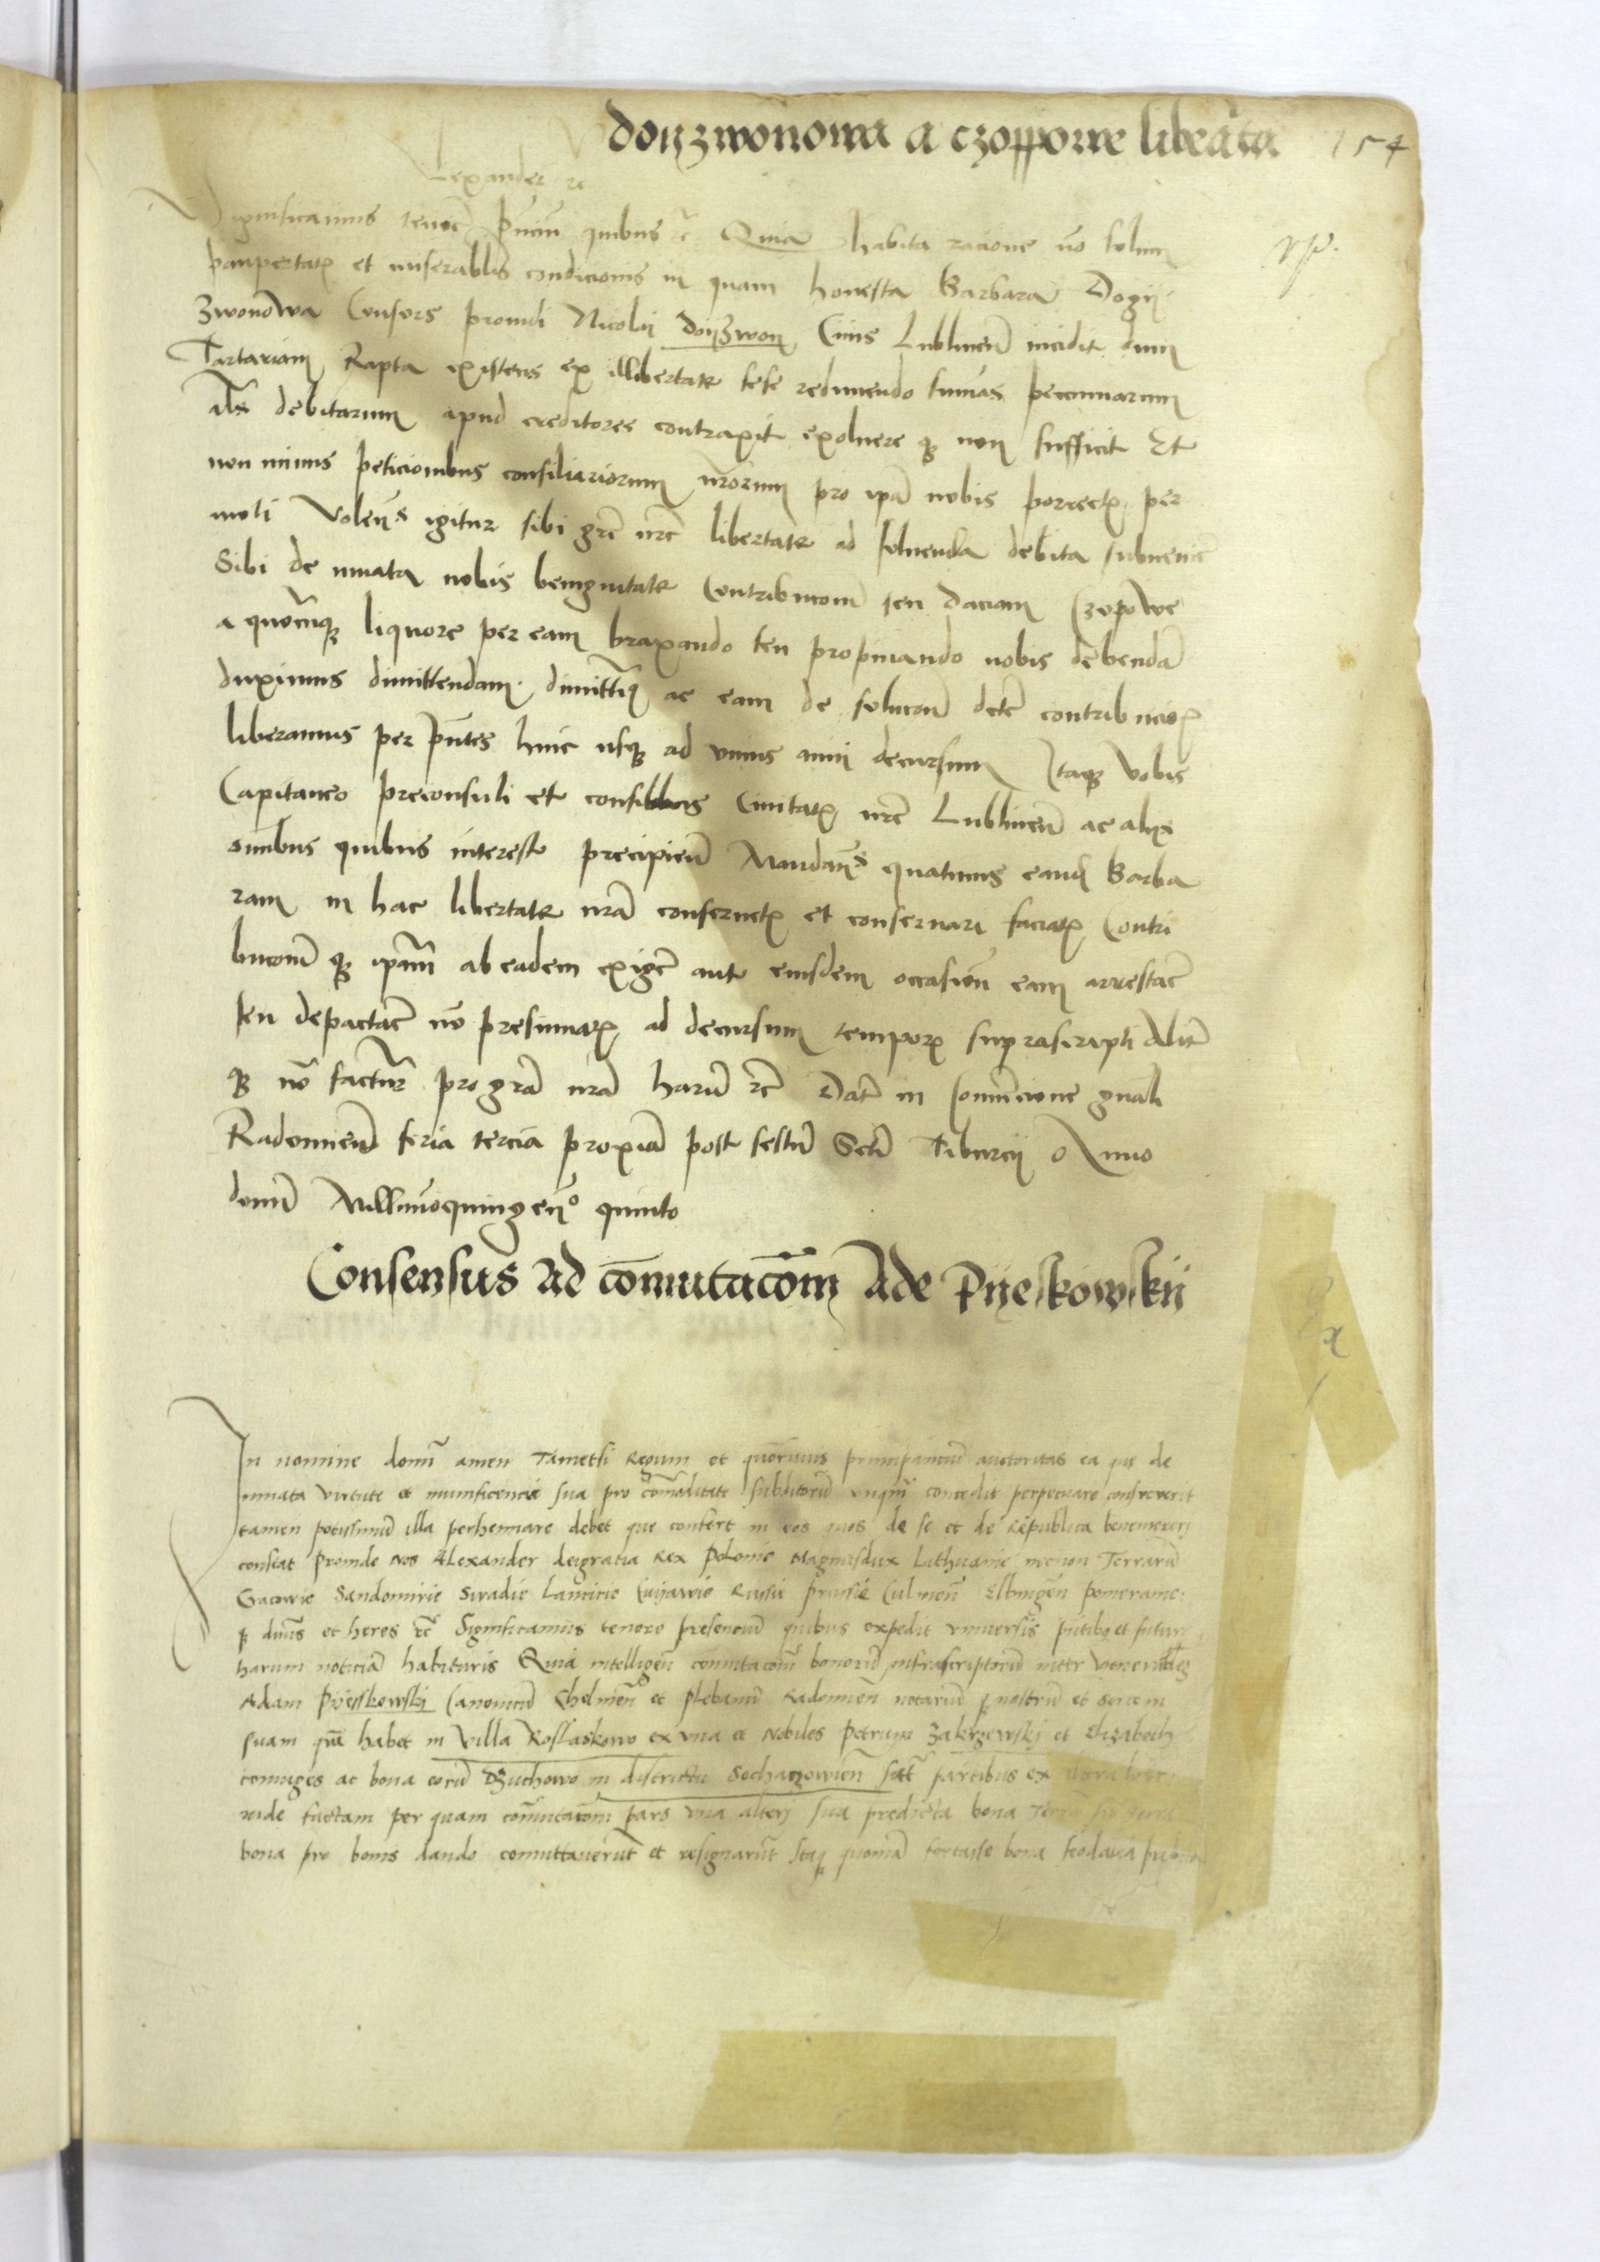 Doijzwonowa a czopporve liberata 154
Alexander rc
Significamus tenor pncium quibus rc Quia habita racione no solum
paupertatis et miserabilis condicionis in quam honesta Barbara Dogij
zwonowa Consors providi Nicolai Doijzwon Civis Lublinen incidit dum
Tartariam Rapta existens ex illibertate sese redimendo sumas pecuniarum
als debitarum apud creditores contraxit exoluere qz non sufficit Et
non minus peticionibus consiliariorum nrorum pro ipa nobis porrectis per
moti Volens igitur sibi gre nre libertate ad soluenda debita subuenire
Sibi de innata nobis benignitate Contribucionem seu daciam Czopowe
a quocunqz liquore per eam braxando seu propinando nobis debendam
duximus dimittendam dimittimusqz ac eam de solucione dicte contribucionis
liberamus per pntes hinc usqz ad vnius anni decursum Itaqz Vobis
Capitaneo preconsuli et consulibus Civitatis nre Lublinen ac alijs
omnibus quibus interest precipien Mandans quatinus eandem Barba
ram in hac libertate nra conservetis et conservari faciatis Contri
bucionem qz ipam ab eadem exigere aut eiusdem occasione eam arrestare
seu depactare no presumatis ad decursum temporis suprascripti Aliter
qz no factur pro gra nra harum rc Datum in convencione gnali
Radomien feria tercia proxima post festum Scti Tiburcij Anno
domi Millimoquingeno quinto
Consensus ad comutacom Ade Pijeskowskij
In nomine domi amen Tametsi Regum et quorumuis principancium auctoritas ea que de
innata virtute et munificencia sua pro comoditate subditorum vnquam concedit perpetuare consueverit
tamen potissimum illa perhennare debet que confert in eos quos de se et de Republica benemereri
constat Proinde Nos Alexander deigratia Rex Polonie Magnusdux Lithuanie necnon Terrarum
Cracovie Sandomirie Siradie Lancicie Cuijavie Russie prussie Culmen Elbingen pomeranie
qz dnus et heres rc Significamus tenore presencium quibus expedit vniversis pntibus et futuris
harum noticiam habituris Quia intelligen comutacom bonorum infrascriptorum inter Venerabilem
Adam Pijesskowskj Canonicum Chelmen et Plebanum Radomien notarium qz nostrum et sortem
suam quam habet in Villa Rosslaskowo ex vna et Nobiles Petrum Zakrzewskj et Elizabeth
coniuges ac bona eorum Dzuchowo in districtu Sochaczowien sita partibus ex altera
inde factam per quam comutacom pars vna alteri sua predicta bona
bona pro bonis dando comuttaverunt et resignarunt Itaqz quoniam fortasse bona feodalia